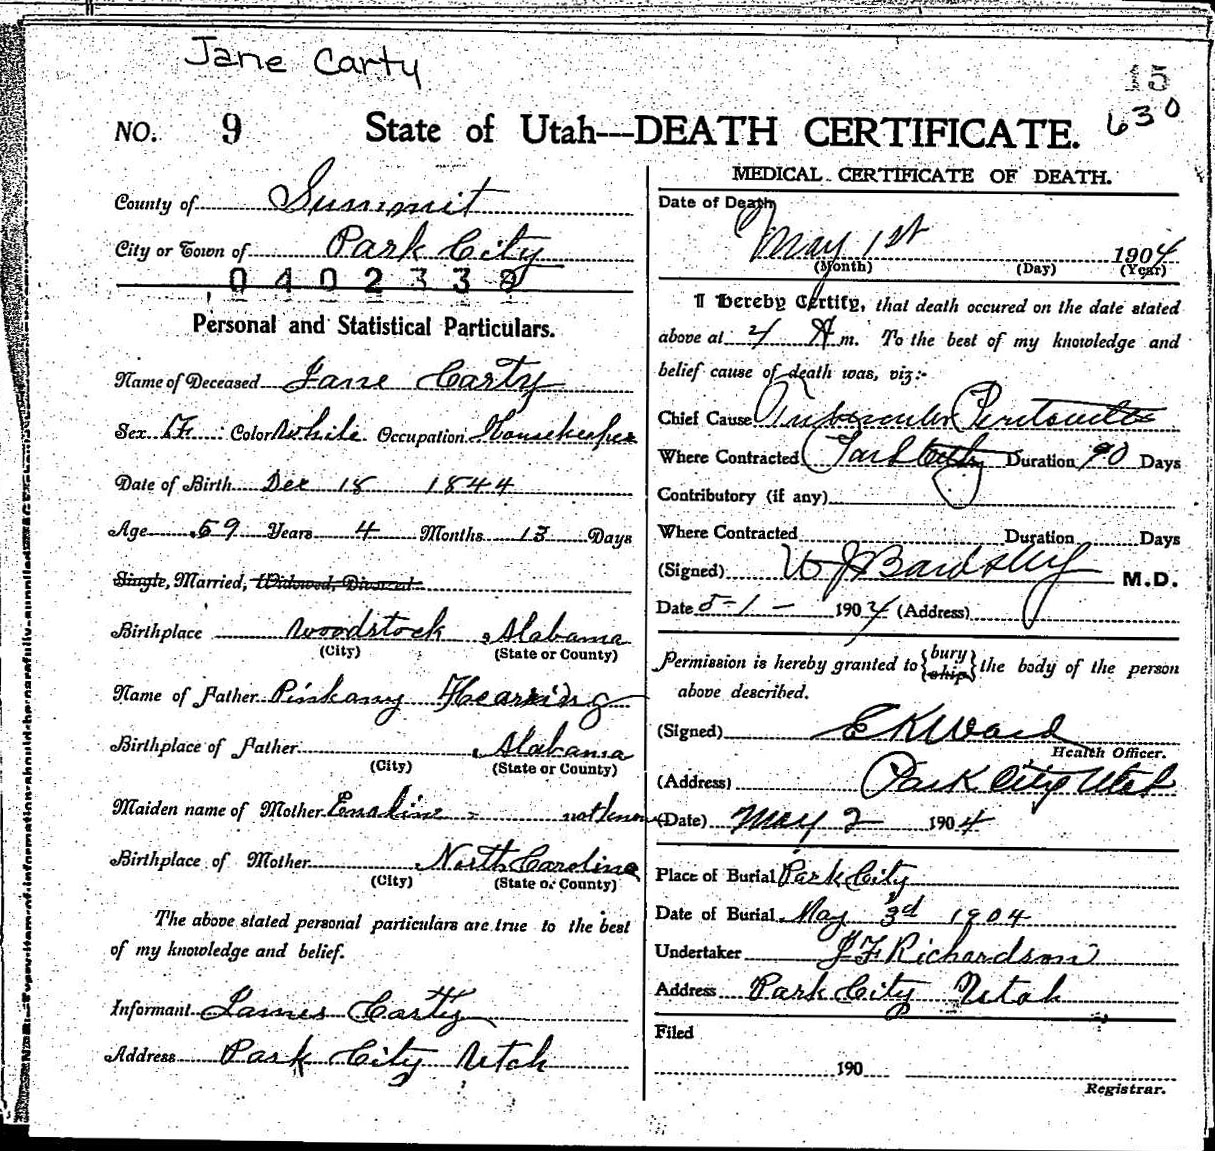 Jane Carty
630
NO. 9 State of Utah---DEATH CERTIFICATE.
County of Summit
City or Town of Park City
040233
Personal and Statistical Particulars.
Name of Deceased Jane Carty
Sex F Color White Occupation Housekeeper
Date of Birth Dec 18 1844
Age 59 Years 4 Months 13 Days
Single, Married, Widowed, Divorced
Birthplace Woodstock, Alabama
(City) (State or County)
Name of Father Pinkany Hearring
Birthplace of Father Alabama
(City) (State or County)
Maiden name of Mother Enaline - not know
Birthplace of Mother North Carolina
(City) (State or County)
The above stated personal particulars are true to the best
of my knowledge and belief.
Informant James Carty
Address Park City Utah
MEDICAL CERTIFICATE OF DEATH.
Date of Death
May 1st 1904
(Month) (Day) (Year)
I hereby Certify, that death occured on the date stated
above at 4 A m. To the best of my knowledge and
belief cause of death was, viz:-
Chief Cause Tubercular Peritonitis
Where Contracted Park City Duration 90 Days
Contributory (if any)
Where Contracted Duration Days
(Signed) W J Bardsley M.D.
Date 5-1- 1904 (Address)
Permission is hereby granted to {bury
ship} the body of the person
above described.
(Signed) E K Ward
Health Officer.
(Address) Park City Utah
(Date) May 2 1904
Place of Burial Park City
Date of Burial May 3d 1904
Undertaker J F Richardson
Address Park City Utah
Filed
190
Registrar.